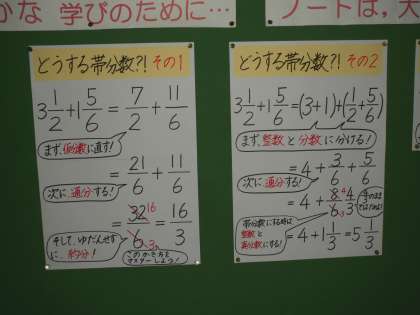 かな 学びのために…
ノートは、大
どうする帯分数?! その1
3 1/2 + 1 5/6 = 7/2 + 11/6
まず、仮分数に直す!
= 21/6 + 11/6
次に、通分する!
= 32/6 = 16/3
16
3
そして、ゆだんせずに、約分!
このかき方をマスターしよう!
どうする帯分数?! その2
3 1/2 + 1 5/6 = (3+1) + (1/2 + 5/6)
まず、整数と分数に分ける!
= 4 + 3/6 + 5/6
次に、通分する!
= 4 + 8/6 4/3
4
3
帯分数にする時は
整数と
真分数にする!
= 4 + 1 1/3 = 5 1/3